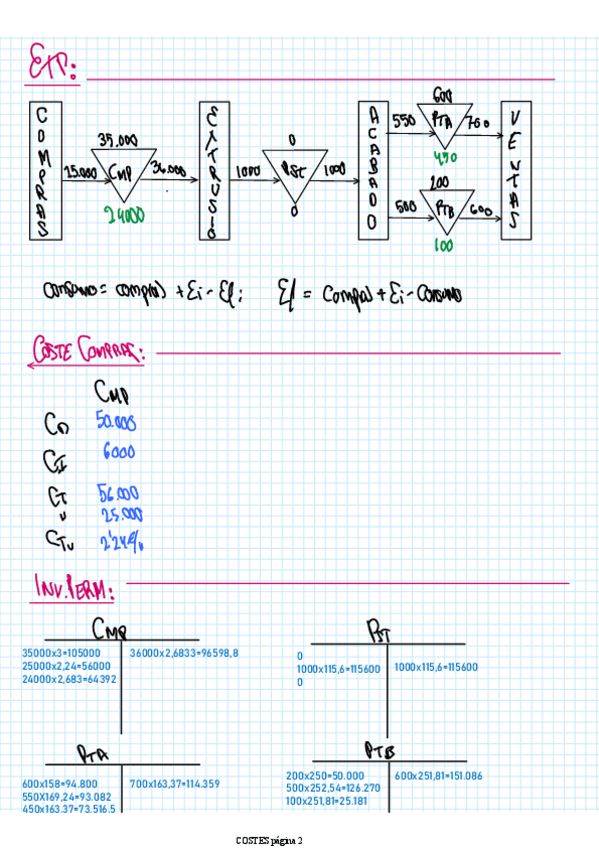 EXP:
COMPRAS
25.000
35.000
CMP
24000
36.000
EXTRUSIÓ
1000
0
PST
0
1000
ACABADO
550
600
PTA
450
700
500
200
PTB
100
600
VENTAS
Consumo = compras + Ei - Ef; Ef = Compras + Ei - Consumo
COSTE COMPRAS:
CMP
CD 50.000
CI 6000
CT 56.000
U 25.000
CTU 2'24€/u
INV.PERM:
CMP
35000x3=105000 36000x2,6833=96598,8
25000x2,24=56000
24000x2,683=64392
PST
0
1000x115,6=115600 1000x115,6=115600
0
PTA
600x158=94.800 700x163,37=114.359
550X169,24=93.082
450x163,37=73.516,5
PTB
200x250=50.000 600x251,81=151.086
500x252,54=126.270
100x251,81=25.181
COSTES página 2